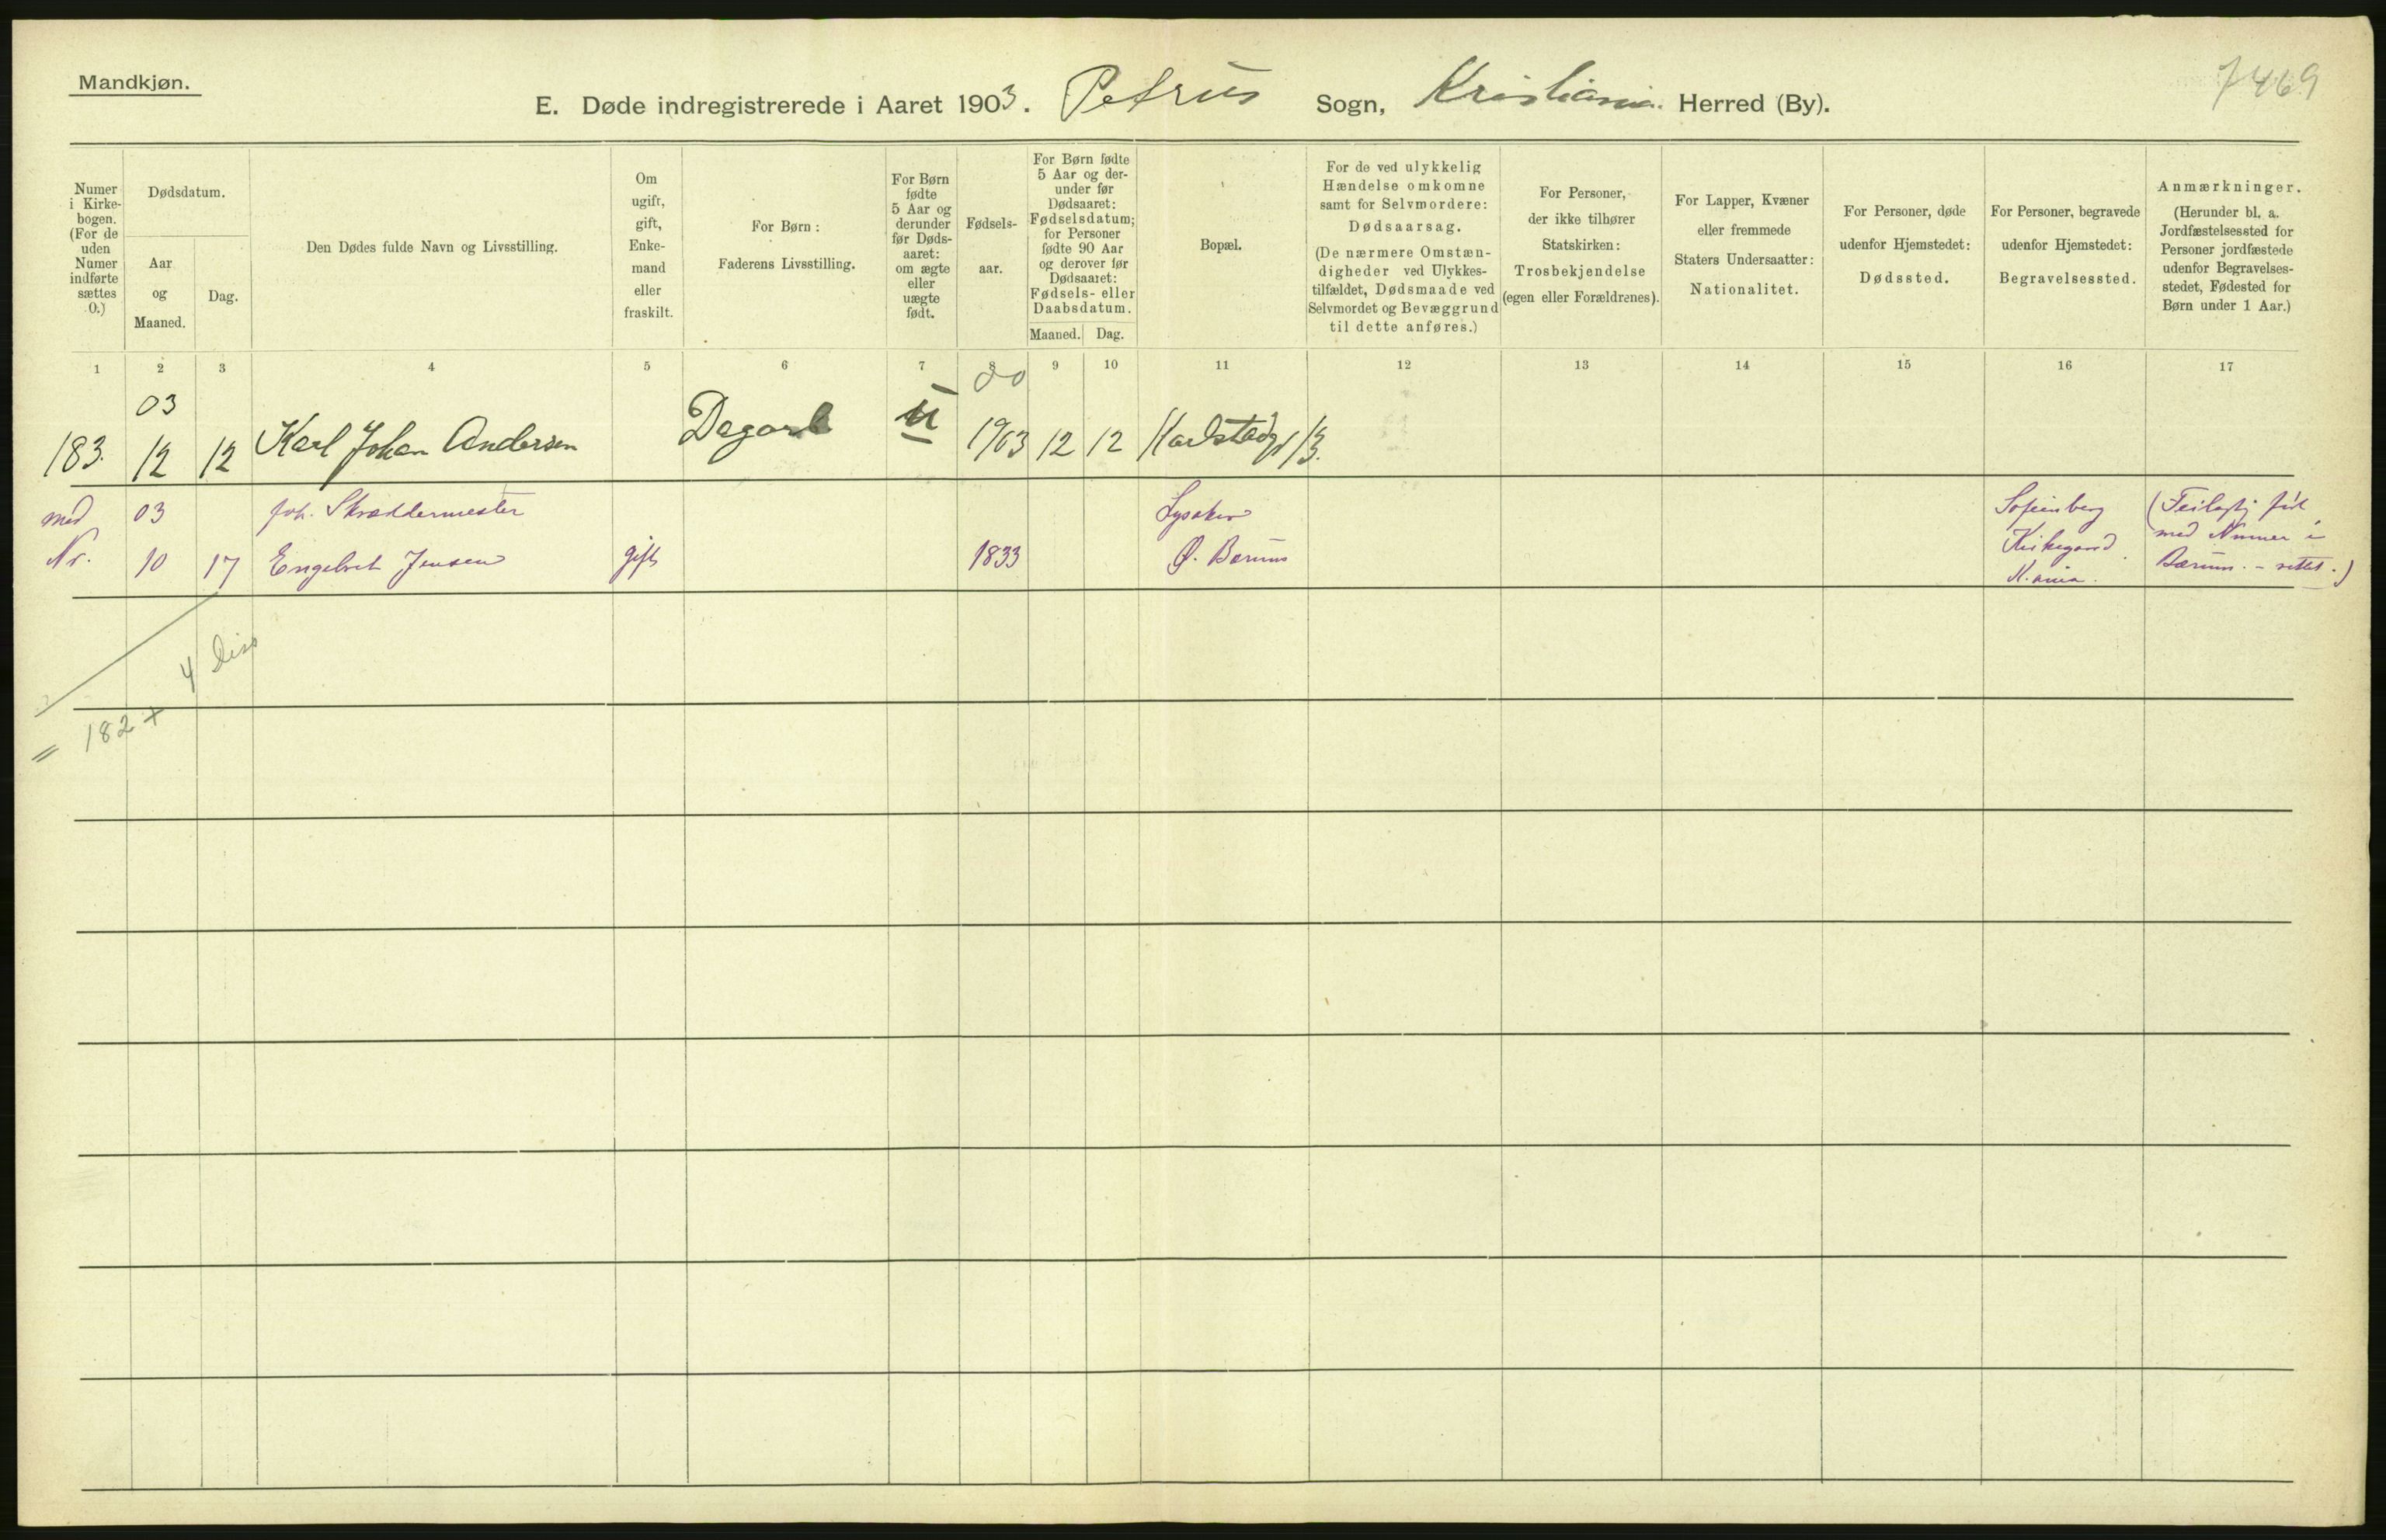 Mandkjøn.
7469
E. Døde indregistrerede i Aaret 1903. Petrus Sogn, Kristiania. Herred (By).
Numer
i Kirke-
bogen.
(For de
uden
Numer
indførte
sættes
0.)
Dødsdatum.
Aar
og
Maaned.
Dag.
Den Dødes fulde Navn og Livsstilling.
Om
ugift,
gift,
Enke-
mand
eller
fraskilt.
For Børn:
Faderens Livsstilling.
For Børn
fødte
5 Aar og
derunder
før Døds-
aaret:
om ægte
eller
uægte
født.
Fødsels-
aar.
For Børn fødte
5 Aar og der-
under før
Dødsaaret:
Fødselsdatum;
for Personer
fødte 90 Aar
og derover før
Dødsaaret:
Fødsels- eller
Daabsdatum.
Maaned. Dag.
Bopæl.
For de ved ulykkelig
Hændelse omkomne
samt for Selvmordere:
Dødsaarsag.
(De nærmere Omstæn-
digheder ved Ulykkes-
tilfældet, Dødsmaade ved
Selvmordet og Bevæggrund
til dette anføres.)
For Personer,
der ikke tilhører
Statskirken:
Trosbekjendelse
(egen eller Forældrenes).
For Lapper, Kvæner
eller fremmede
Staters Undersaatter:
Nationalitet.
For Personer, døde
udenfor Hjemstedet:
Dødssted.
For Personer, begravede
udenfor Hjemstedet:
Begravelsessted.
Anmærkninger.
(Herunder bl. a.
Jordfæstelsessted for
Personer jordfæstede
udenfor Begravelses-
stedet, Fødested for
Børn under 1 Aar.)
1 2 3 4 5 6 7 8 9 10 11 12 13 14 15 16 17
03
183. 12 12 Karl Johan Andersen Dagarb u 1903 12 12 Karlstadgd 13.
med 03 Skræddermester Lysaker Sofienberg
Nr. 10 17 Engebret Jensen gift 1833 Ø. Bærum Kirkegaard
K.ania.
med Numer i
Bærum. - rettet.)
4
= 182 +